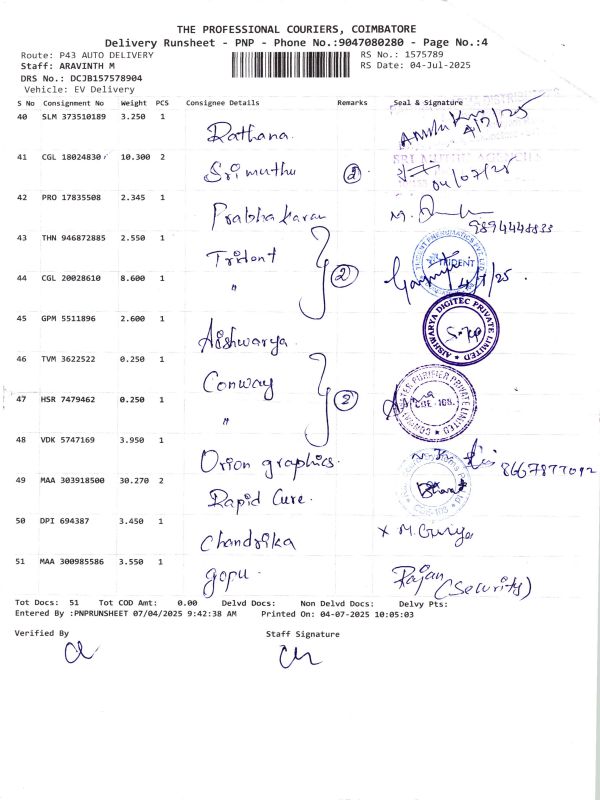 THE PROFESSIONAL COURIERS, COIMBATORE
Delivery Runsheet - PNP - Phone No.:9047080280 - Page No.:4
Route: P43 AUTO DELIVERY
RS No.: 1575789
Staff: ARAVINTH M
RS Date: 04-Jul-2025
DRS No.: DCJB157578904
Vehicle: EV Delivery
S No Consignment No Weight PCS Consignee Details Remarks Seal & Signature
40 SLM 373510189 3.250 1
Rathana 4/7/25
41 CGL 18024830 10.300 2
Srimuthu 2 04/07/25
SRI MUTHU AGENCIES
42 PRO 17835508 2.345 1
Prabhakaran M. 9894448833
43 THN 946872885 2.550 1
Trident
TRIDENT PNEUMATICS PVT. LTD
TRIDENT
44 CGL 20028610 8.600 1
" 2 4/7/25.
45 GPM 5511896 2.600 1
Aishwarya.
AISHWARYA DIGITEC PRIVATE LIMITED
46 TVM 3622522 0.250 1
Conway
PURIFIER PRIVATE LIMITED
CBE-108.
47 HSR 7479462 0.250 1
" 2
48 VDK 5747169 3.950 1
Orion graphics. 8667877092
49 MAA 303918500 30.270 2
Rapid Cure.
50 DPI 694387 3.450 1
Chandrika x M.
51 MAA 300985586 3.550 1
gopu. Rajan (Security)
Tot Docs: 51 Tot COD Amt: 0.00 Delvd Docs: Non Delvd Docs: Delvy Pts:
Entered By :PNPRUNSHEET 07/04/2025 9:42:38 AM Printed On: 04-07-2025 10:05:03
Verified By Staff Signature